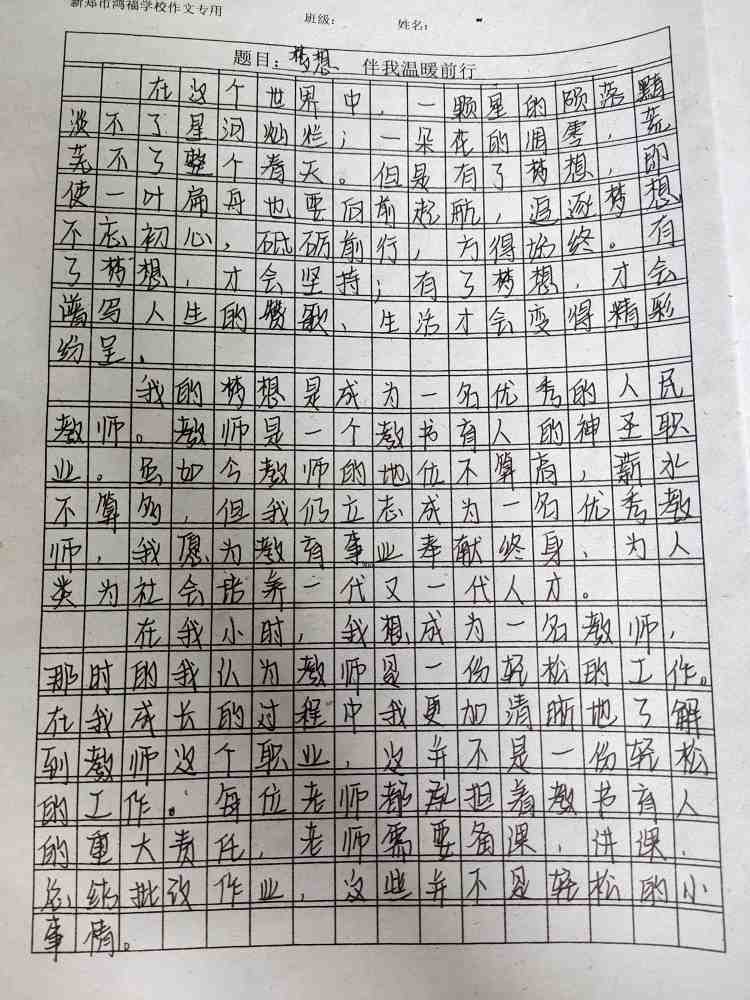 新郑市鸿福学校作文专用 班级: 姓名:
题目:梦想 伴我温暖前行
在这个世界中,一颗星的陨落黯
淡不了星河灿烂;一朵花的凋零,荒
芜不了整个春天。但是有了梦想,即
使一叶扁舟也要向前起航,追逐梦想
不忘初心,砥砺前行,方得始终。有
了梦想,才会坚持;有了梦想,才会
谱写人生的赞歌、生活才会变得精彩
纷呈.
我的梦想是成为一名优秀的人民
教师。教师是一个教书育人的神圣职
业。虽如今教师的地位不算高,薪水
不算多,但我仍立志成为一名优秀教
师,我愿为教育事业奉献终身,为人
类为社会培养一代又一代人才。
在我小时,我想成为一名教师,
那时的我认为教师是一份轻松的工作。
在我成长的过程中我更加清晰地了解
到教师这个职业,这并不是一份轻松
的工作。每位老师都承担着教书育人
的重大责任,老师需要备课,讲课,
总结批改作业,这些并不是轻松的小
事情。